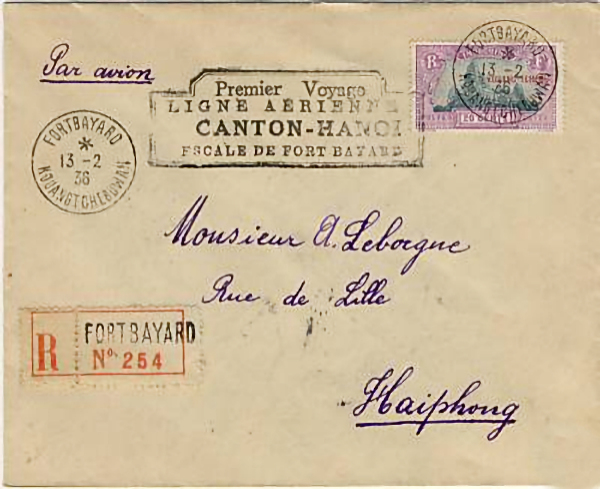 Par avion
Premier Voyage
LIGNE AÉRIENNE
CANTON-HANOI
ESCALE DE FORT BAYARD
R F
20 CENTS
FORTBAYARD
*
13 -2
36
KOUANGTCHEOUWAN
FORTBAYARD
*
13 -2
36
KOUANGTCHEOUWAN
Monsieur A. Leborgne
Rue de Lille
Haiphong
R
FORTBAYARD
No. 254